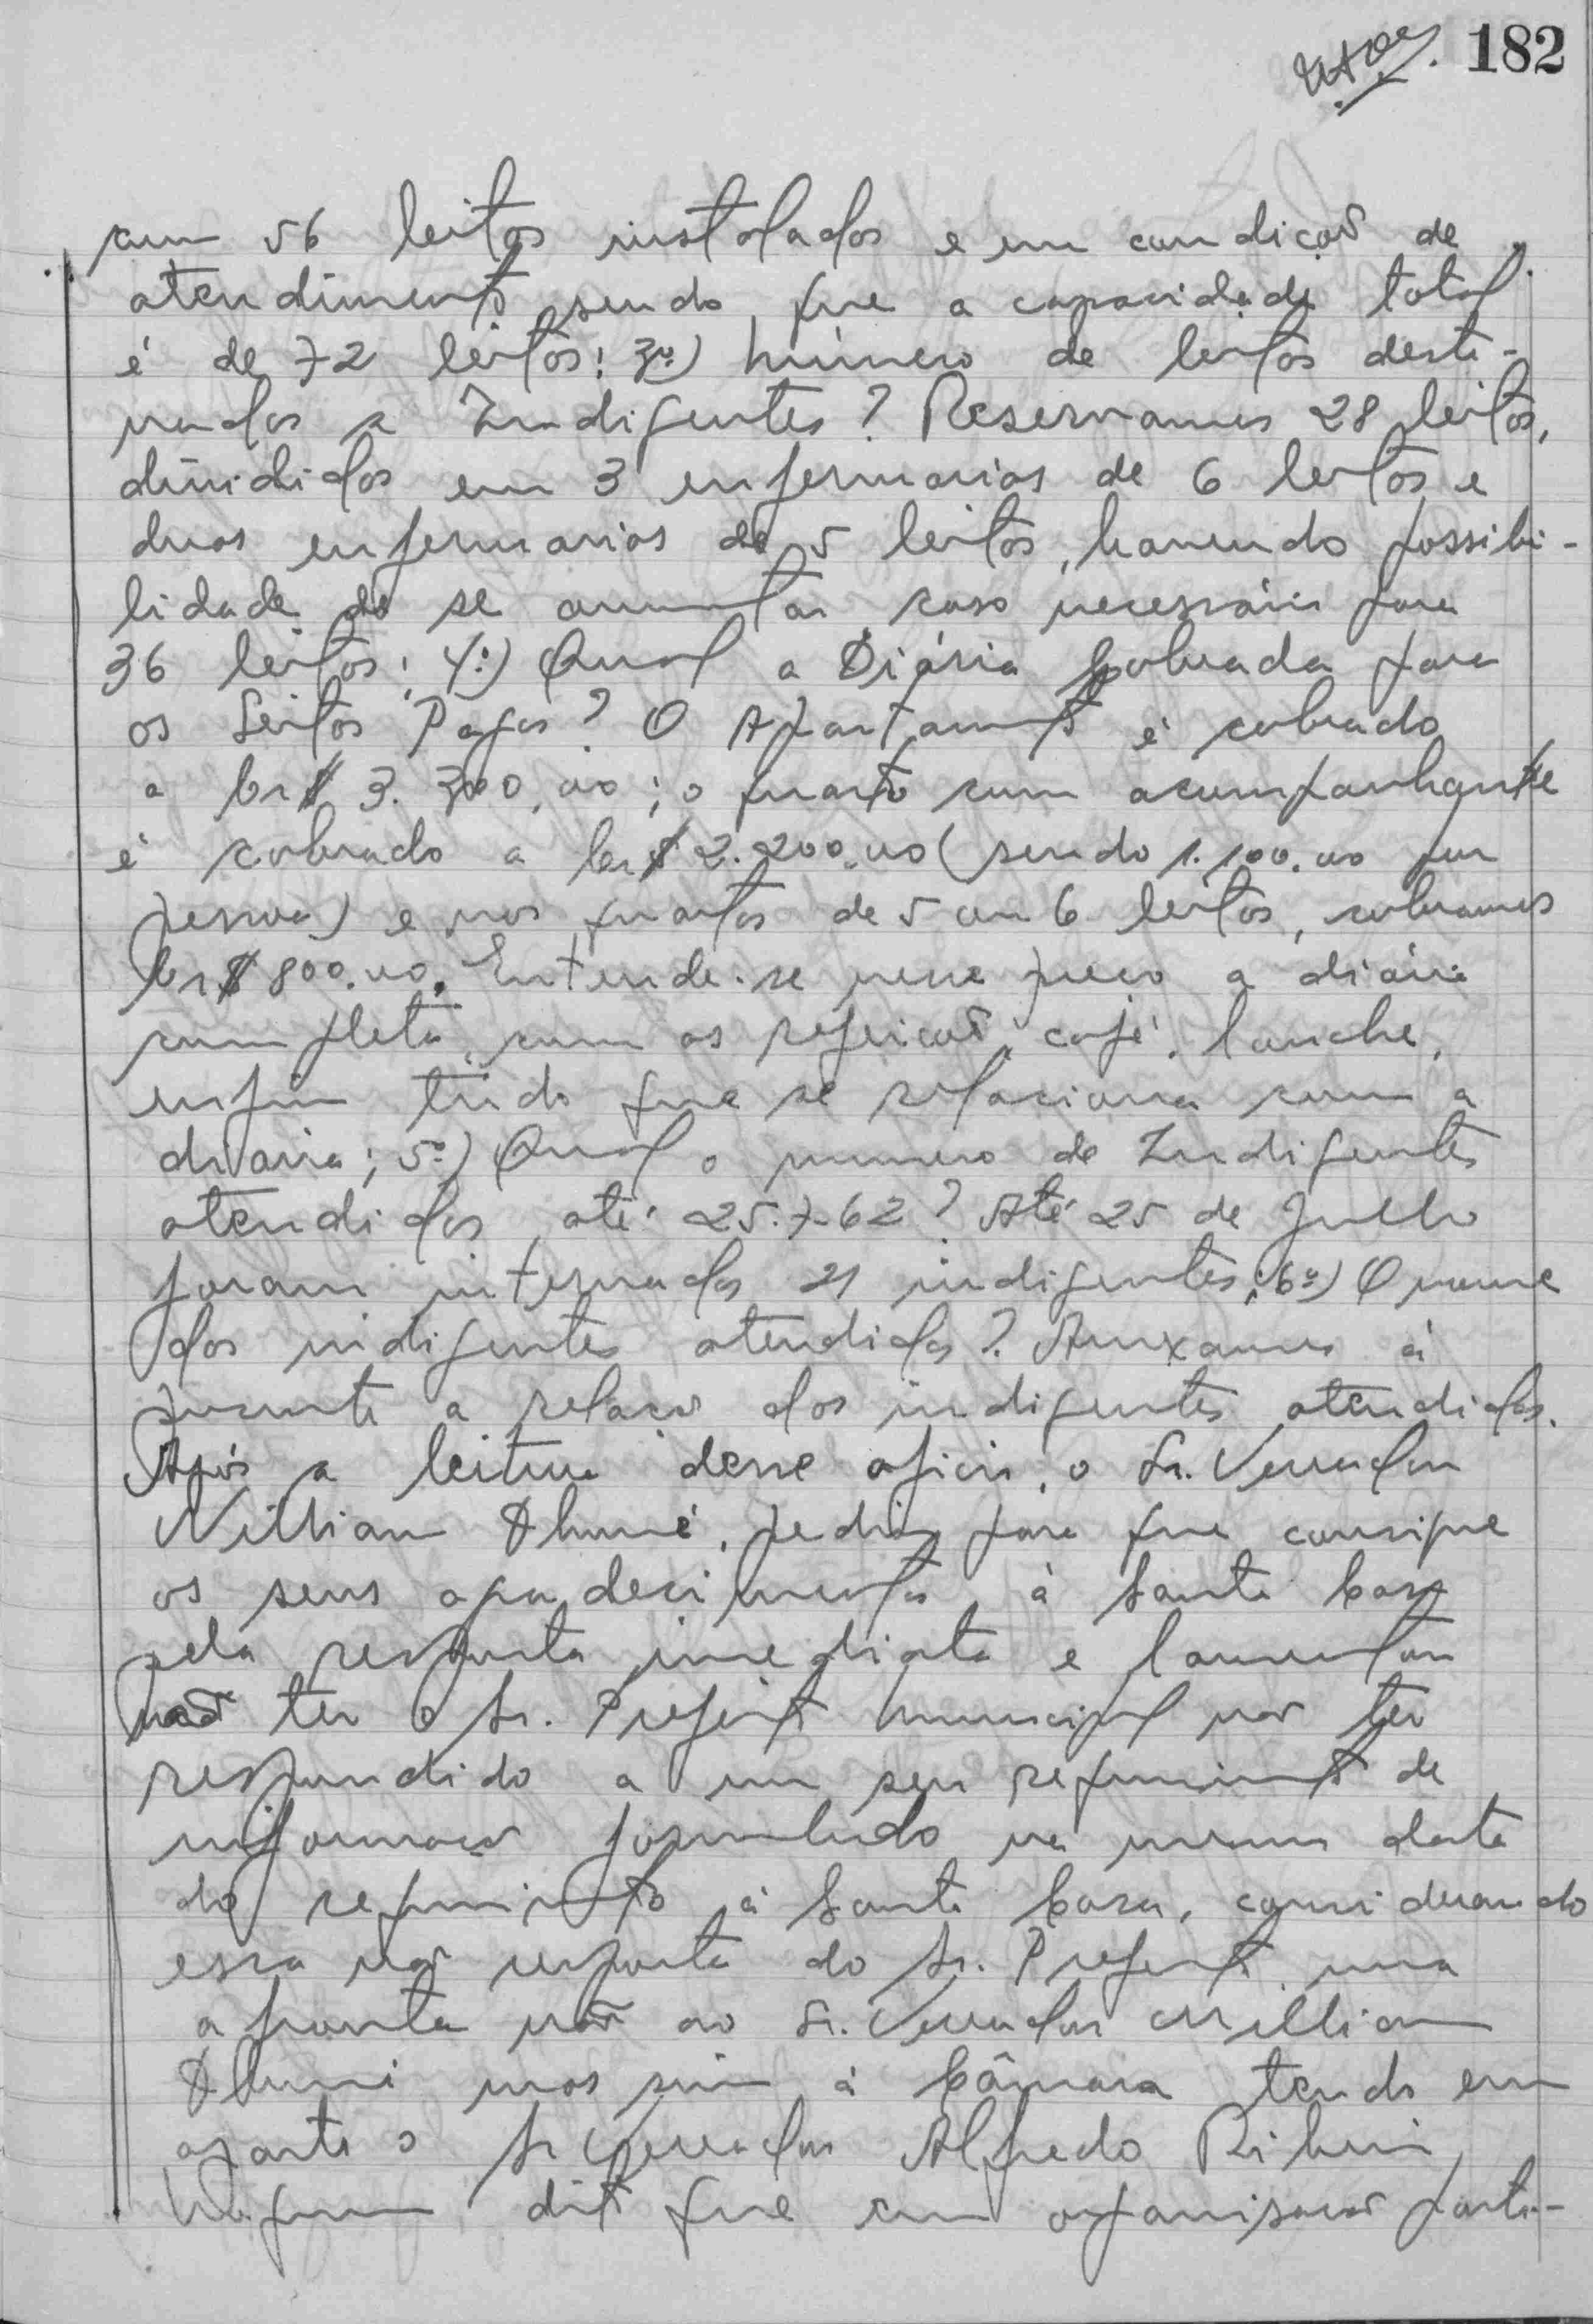 182
com 56 leitos instalados e em condições de
atendimento, sendo que a capacidade total
é de 72 leitos; 3º) número de leitos desti-
nados a Indigentes? Reservamos 28 leitos,
divididos em 3 enfermarias de 6 leitos e
duas enfermarias de 5 leitos, havendo possibi-
lidade de se aumentar caso necessário para
36 leitos; 4º) Qual a Diária cobrada para
os Leitos Pagos? O Apartamento é cobrado
a Cr$ 3.300,00; o quarto com acompanhante
é cobrado a Cr$ 2.200,00 (sendo 1.100,00 por
pessoa) e nos quartos de 5 ou 6 leitos, cobramos
Cr$ 800,00. Entende-se nesse preço a diária
completa, com as refeições, café, lanche,
enfim tudo que se relaciona com a
diaria; 5º) Qual o numero de Indigentes
atendidos até 25-7-62? Até 25 de Julho
foram internados 21 indigentes; 6º) O nome
dos indigentes atendidos? Anexamos à
presente a relação dos indigentes atendidos.
Após a leitura desse oficio, o Sr. Vereador
Willian pediu para que consigne
os seus agradecimentos à Santa Casa
pela resposta imediata e lamentar
não ter o Sr. Prefeito Municipal não ter
respondido a um seu requerimento de
informação formulado na mesma data
do requerimento à Santa Casa, considerando
essa não resposta do Sr. Prefeito, uma
afronta não ao Sr. Vereador Willian
mas sim à Câmara tendo em
aparte o Sr. Vereador Alfredo Ribeiro
dito que com organisação parti-